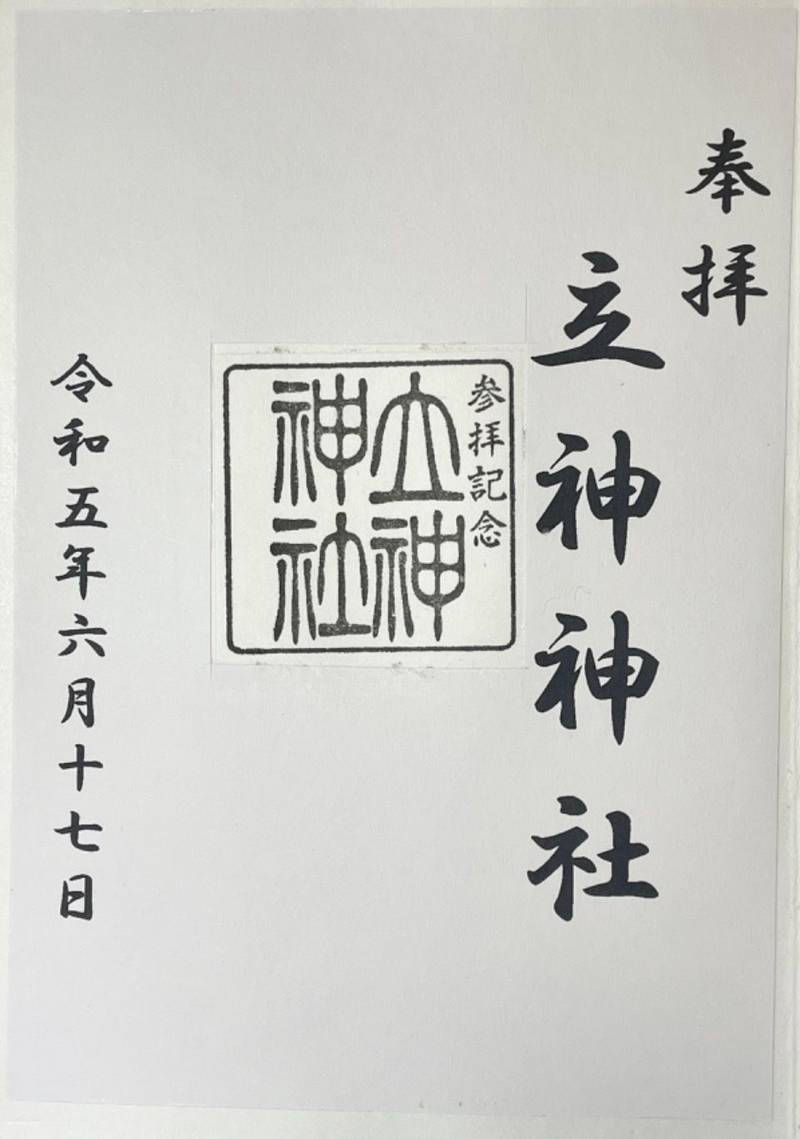 奉拝
立神神社
参拝記念
立神
神社
令和五年六月十七日